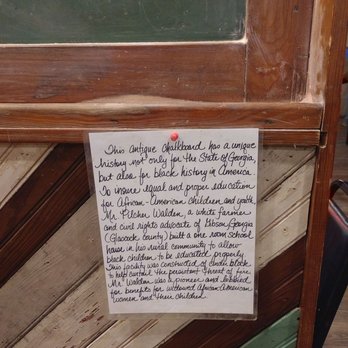 This antique chalkboard has a unique
history not only for the State of Georgia,
but also for black history in America.
To insure equal and proper education
for African-American children and youth,
Mr. Pilcher Walden, a white farmer
and civil rights advocate of Gibson, Georgia
(Glascock County) built a one room school
house in his rural community to allow
black children to be educated properly.
This facility was constructed of cinder block
to help curtail the persistent threat of fire.
Mr. Walden was a pioneer and lobbied
for benefits for widowed African American
women and their children.